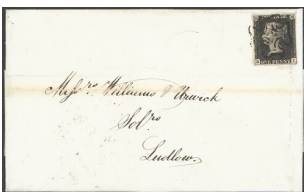 ONE PENNY
Messrs Williams & Urwick
Solrs
Ludlow